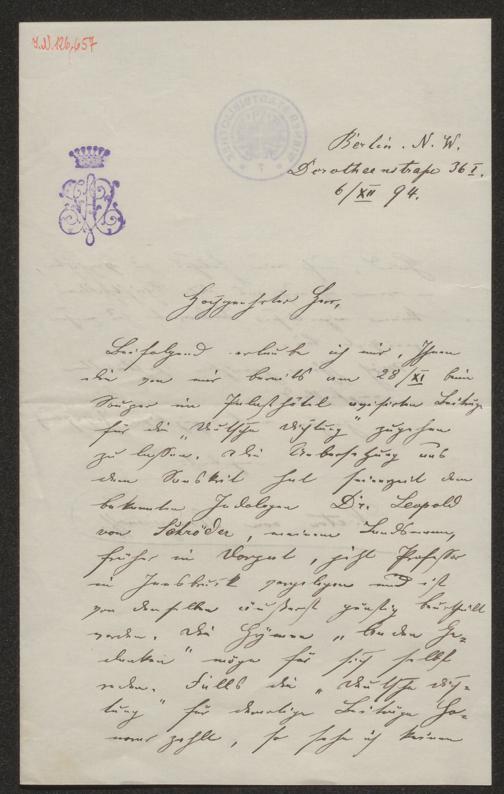 I.N. 126,657
Berlin. N. W.
Dorotheenstraße 36 I.
6/XII 94.
Hochgeehrter Herr,
Beifolgend erlaube ich mir, Ihnen
die von mir bereits am 28/XI beim
Souper im Palasthôtel avisirten Beiträge
für die „Deutsche Dichtung" zugehen
zu lassen. Die Uebersetzung aus
dem Sanskrit hat seinerzeit dem
bekannten Indologen Dr. Leopold
von Schröder, meinem Landsmann,
früher in Dorpat, jetzt Professor
in Innsbruck vorgelegen und ist
von demselben äußerst günstig beurtheilt
worden. Die Hymne „ Ge-
danken" möge für sich selbst
reden. Falls die „Deutsche Dich-
tung" für derartige Beiträge Ho-
norar zahlt, so sehe ich keinen